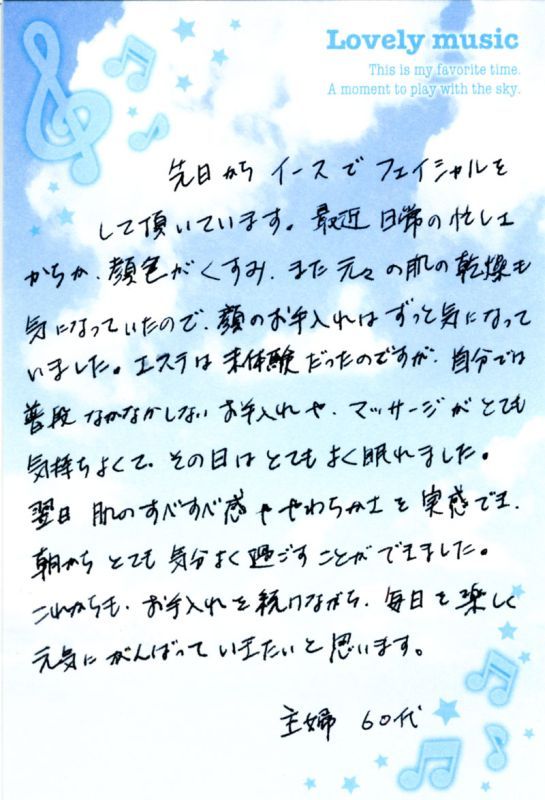 Lovely music
This is my favorite time.
A moment to play with the sky.
先日から イースで フェイシャルを
して頂いています。最近 日常の忙しさ
からか、顔色がくすみ、また元々の肌の乾燥も
気になっていたので、顔のお手入れは ずっと気になって
いました。エステは 未体験だったのですが、自分では
普段 なかなかしない お手入れや、マッサージが とても
気持ちよくて、その日は とても よく眠れました。
翌日 肌のすべすべ感や やわらかさを 実感でき、
朝から とても 気分よく過ごす ことが できました。
これからも、お手入れを続けながら、毎日を楽しく
元気に がんばって いきたいと 思います。
主婦 60代